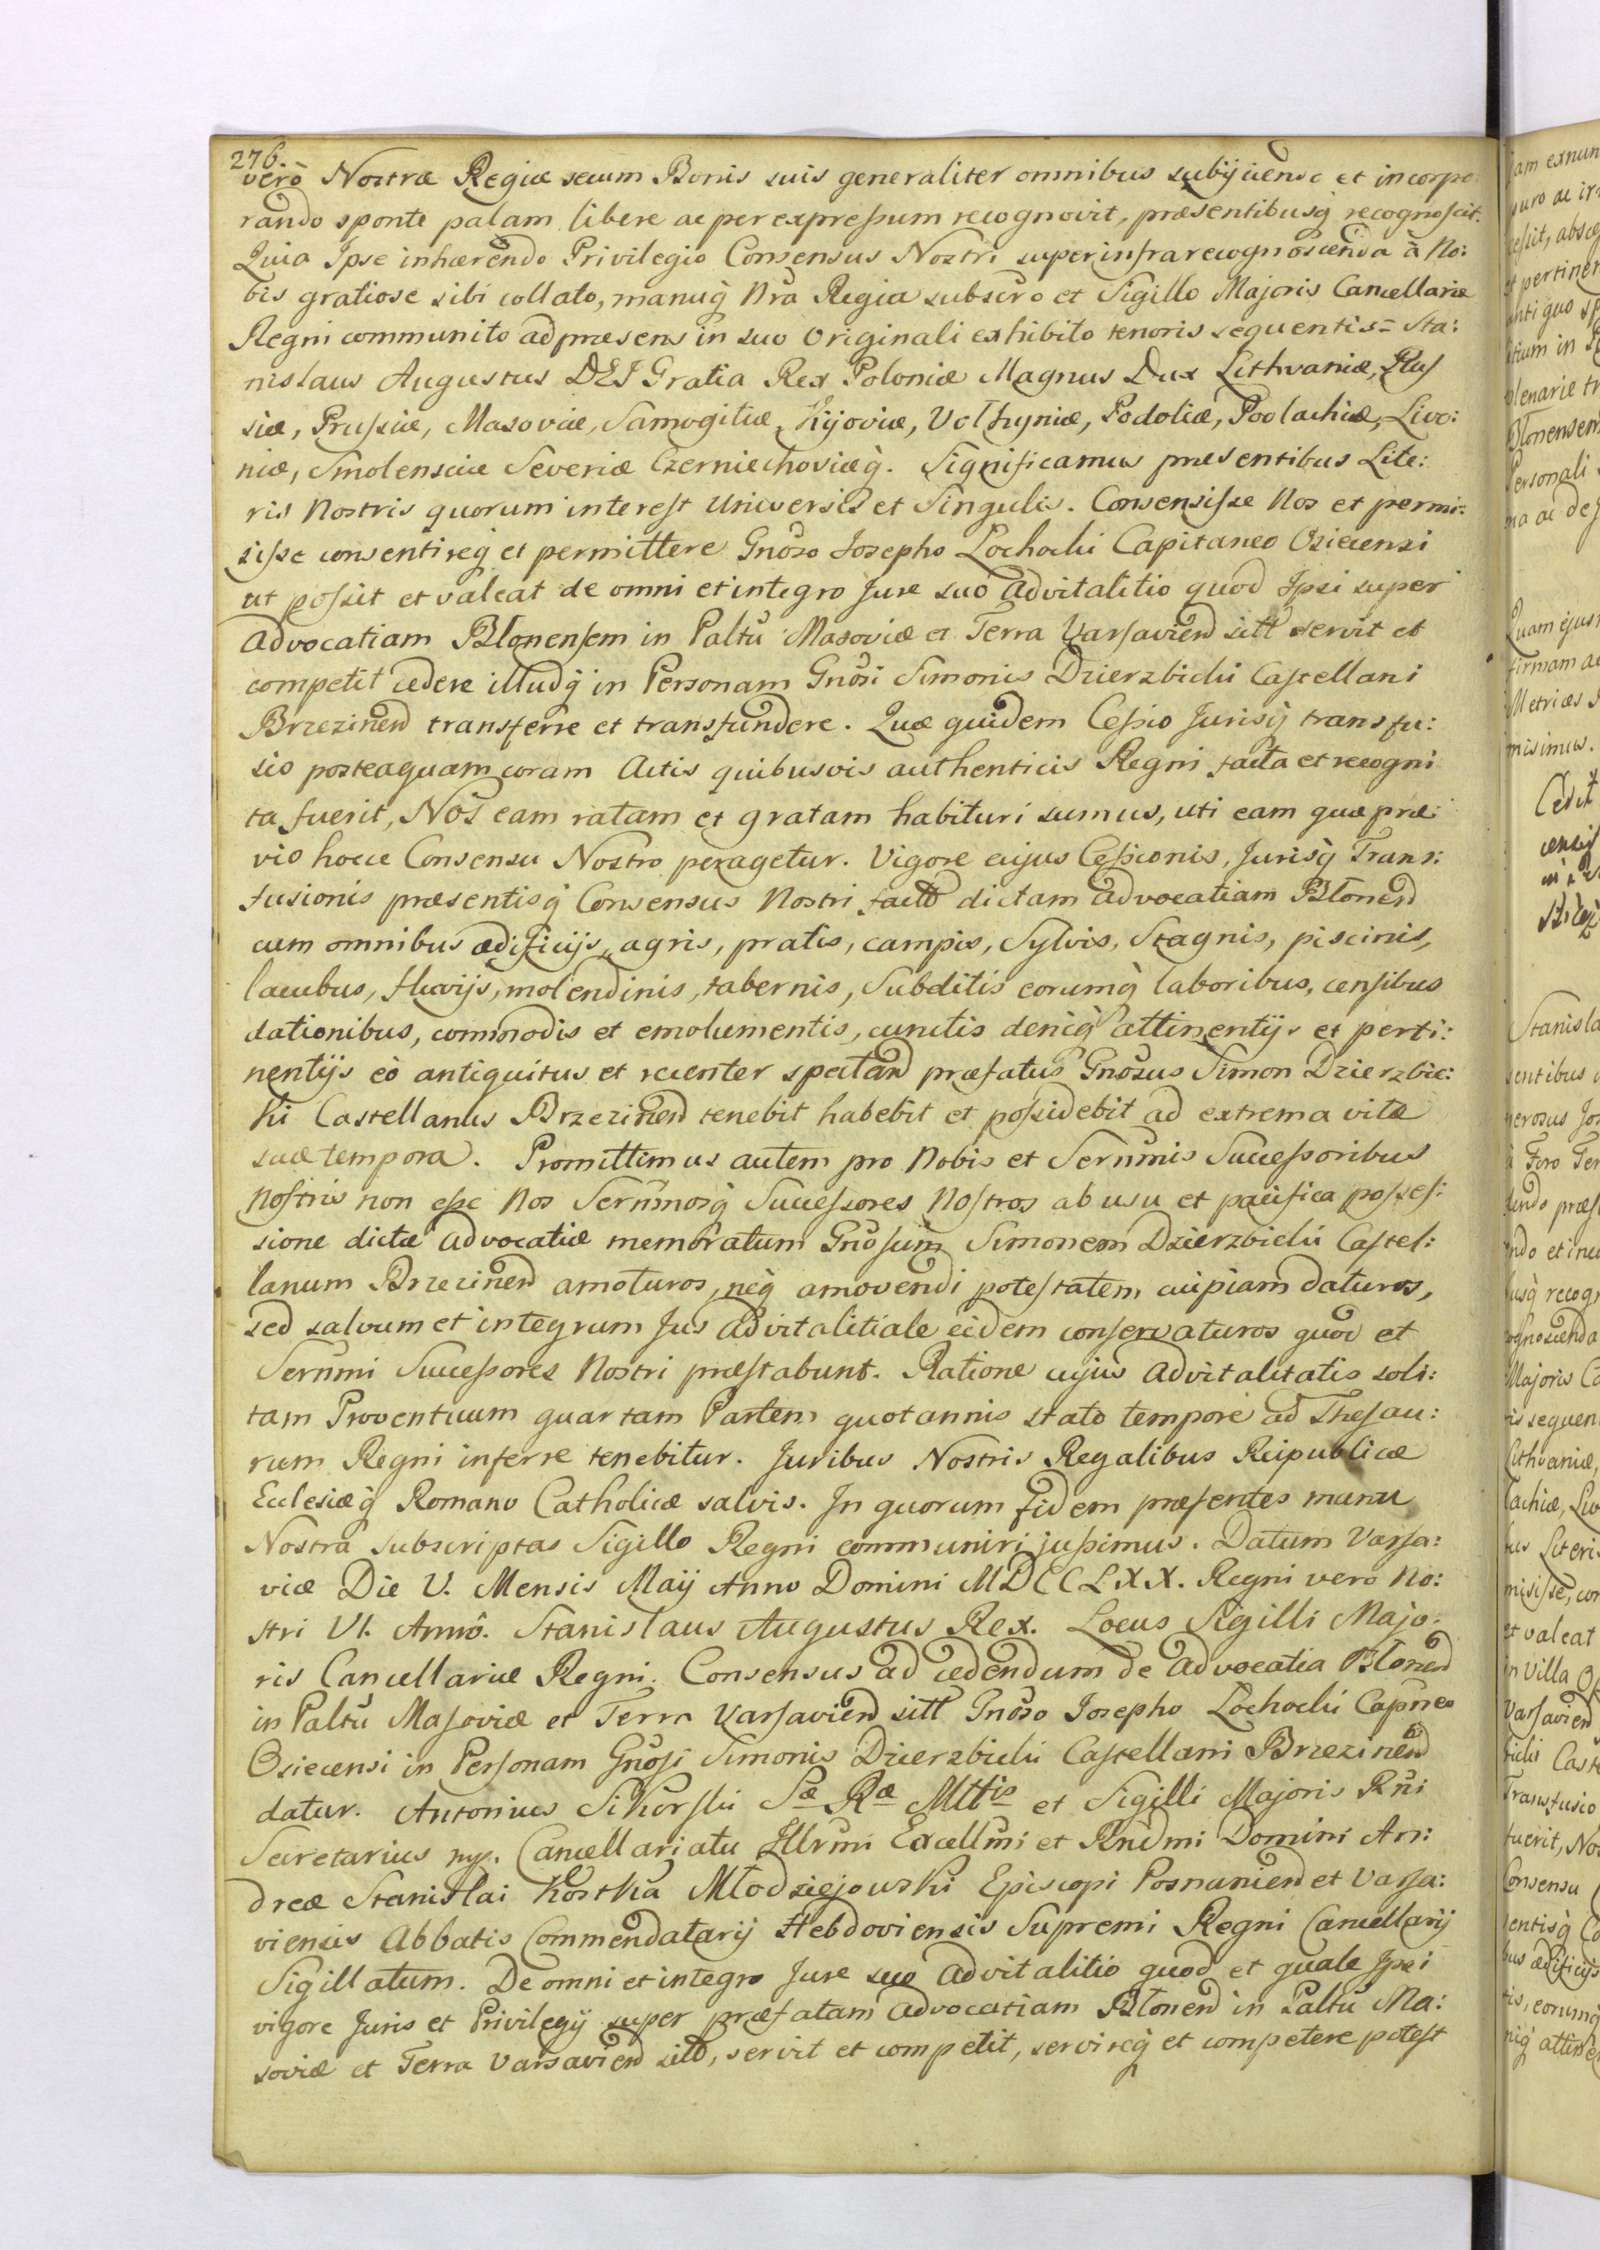 276.
vero Nostræ Regiæ secum Bonis suis generaliter omnibus subijciendo et incorpo
rando sponte palam libere ac per expreſsum recognovit, præsentibusq̀ recognoſcit.
Quia Ipse inhærendo Privilegio Consensus Nostri super infrarecognoscenda à No:
bis gratiose sibi collato, manuq̀ Nrã Regia subscro et Sigillo Majoris Cancellariæ
Regni communito ad præsens in suo Originali exhibito tenoris sequentis= Sta:
nislaus Augustus DEI Gratia Rex Poloniæ Magnus Dux Lithvaniæ, Ruſ
siæ, Pruſsiæ, Masoviæ, Samogitiæ, Kijoviæ, Volhyniæ, Podoliæ, Podlachiæ, Livo:
niæ, Smolensciæ Severiæ Czerniechoviæq̀. Significamus præsentibus Lite:
ris Nostris quorum intereſt Universis et Singulis. Consensiſse Nos et permi:
siſse consentireq̀ et permittere Gnoso Josepho Lochocki Capitaneo Osiecensi
ut poſsit et valeat de omni et integro Jure suo Advitalitio quod Ipsi super
Advocatiam Blonenſem in Paltũ Masoviæ et Terra Varſavien̄ sitt servit et
competit cedere illudq̀ in Personam Gnosi Simonis Dzierzbicki Caſtellani
Brzezinen̄ transferre et transfundere. Quæ quidem Ceſsio Jurisq̀ transfu:
sio posteaquam coram Actis quibusvis authenticis Regni facta et recogni
ta fuerit, Nos eam ratam et gratam habituri sumus, uti eam quæ præ:
vio hocce Consensu Nostro peragetur. Vigore cujus Ceſsionis, Jurisq̀ Trans:
fusionis præsentisq̀ Consensus Nostri factt dictam Advocatiam Blonen̄
cum omnibus ædificijs, agris, pratis, campis, Sylvis, Stagnis, piscinis,
lacubus, fluvijs, molendinis, tabernis, Subditis eorumq̀ laboribus, cenſibus
dationibus, commodis et emolumentis, cunctis deniq̀ attinentijs et perti:
nentijs eò antiquitus et recenter spectan̄ præfatus Gnosus Simon Dzierzbic:
ki Castellanus Brzezinen̄ tenebit habebit et poſsidebit ad extrema vitæ
suæ tempora. Promittimus autem pro Nobis et Serñmis Succeſsoribus
Noſtris non eſse Nos Serñmosq̀ Succeſsores Noſtros ab usu et pacifica poſseſ:
sione dictæ Advocatiæ memoratum Gnoſum Simonem Dzierzbicki Caſtel:
lanum Brzezinen̄ amoturos, neq̀ amovendi poteſtatem cuipiam daturos,
sed salvum et integrum Jus Advitalitiale eidem conſervaturos quod et
Serñmi Succeſsores Nostri præſtabunt. Ratione cujus Advitalitatis soli:
tam Proventuum quartam Partem quotannis stato tempore ad Theſau:
rum Regni inferre tenebitur. Juribus Nostris Regalibus Reipublicæ
Ecclesiæq̀ Romano Catholicæ salvis. In quorum fidem præſentes manu
Nostrâ subscriptas Sigillo Regni communiri juſsimus. Datum Varſa:
viæ Die V. Mensis Maij Anno Domini MDCCLXX. Regni vero No:
stri VI. Annô. Stanislaus Augustus Rex. Locus Sigilli Majo:
ris Cancellariæ Regni. Consensus ad cedendum de Advocatia Blonen̄
in Paltũ Maſoviæ et Terra Varſavien̄ sitt Gnoso Josepho Lochocki Capñeo
Osiecensi in Perſonam Gnosi Simonis Dzierzbicki Caſtellani Brzezinen̄
datur. Antonius Sikorſki Sæ Ræ Mttis et Sigilli Majoris Rñi
Secretarius mp. Cancellariatu Illrm̃i Excellm̃i et Rñdmi Domini An:
dreæ Stanislai Kostka Młodziejowski Episcopi Posnanien̄ et Varſa:
viensis Abbatis Commendatarij Hebdoviensis Supremi Regni Cancellarij
Sigillatum. De omni et integro Jure suo Advitalitio quod et quale Ipsi
vigore Juris et Privilegij super præfatam Advocatiam Blonen̄ in Paltũ Ma:
soviæ et Terra Varsavien̄ sitt, servit et competit, servireq̀ et competere poteſt